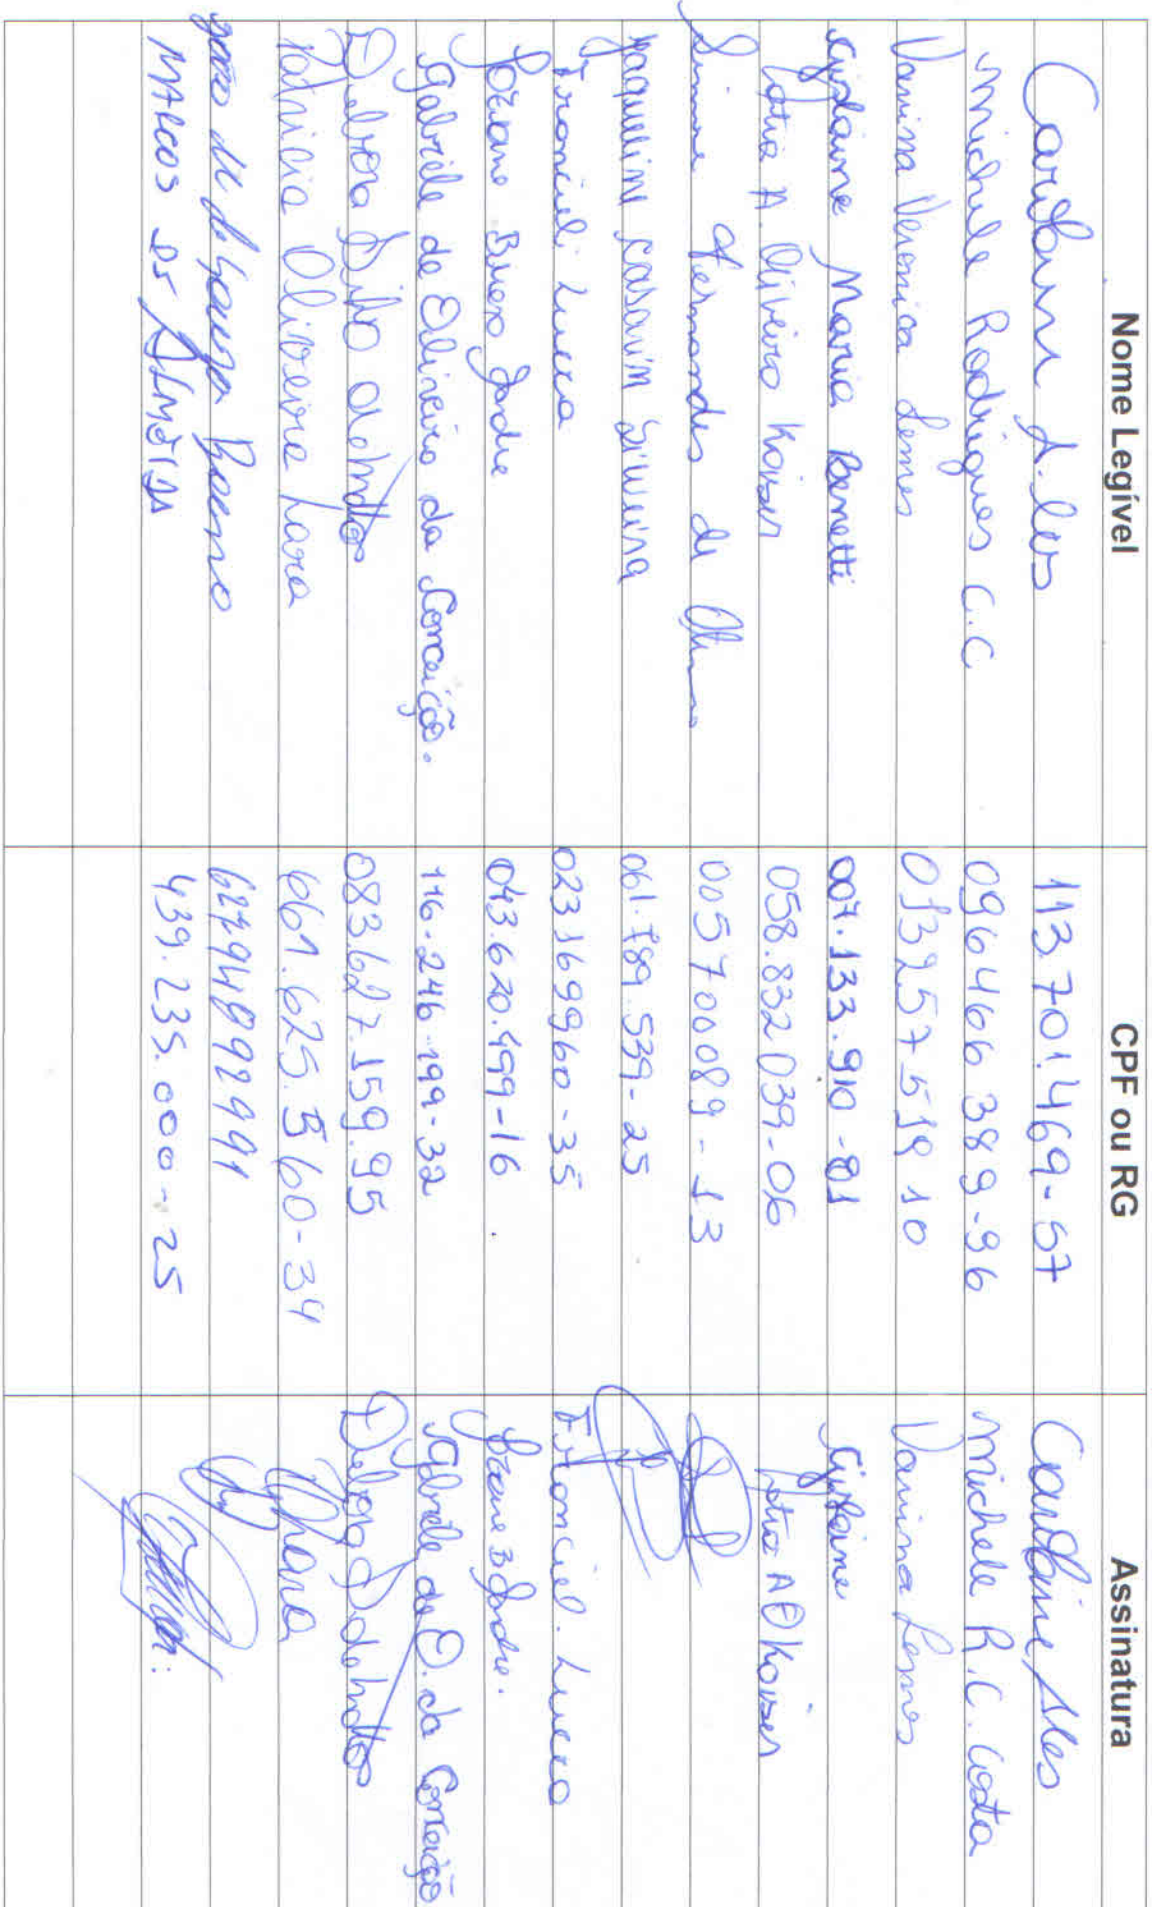 Nome Legível CPF ou RG Assinatura
113.701.469-57
Michele Rodrigues C.C 096466389-96 Michele R.C. Costa
Vanina Veronica Lemes 01325751910 Vanina Lemes
Gislaine Maria Benetti 007.133.910-81 Gislaine
Katia A. Oliveira Kaiser 058.832039-06 Katia A O Kaiser
Simone Fernandes de 005700089-13
Jaqueline Casarin Silveira 061.789.539-25
Francieli Lucca 023169960-35 Francieli Lucca
Joziane Bueno Jandre 043.620.499-16 Joziane B Jandre.
Gabriele de Oliveira da Conceição. 116.246.199-32 Gabriele de O. da Conceição
Debora 083.627.159.95 Debora
Patricia Oliveira Lara 061.625.560-34
de Souza Bueno
MARCOS DE ALMEIDA 439.235.000-25